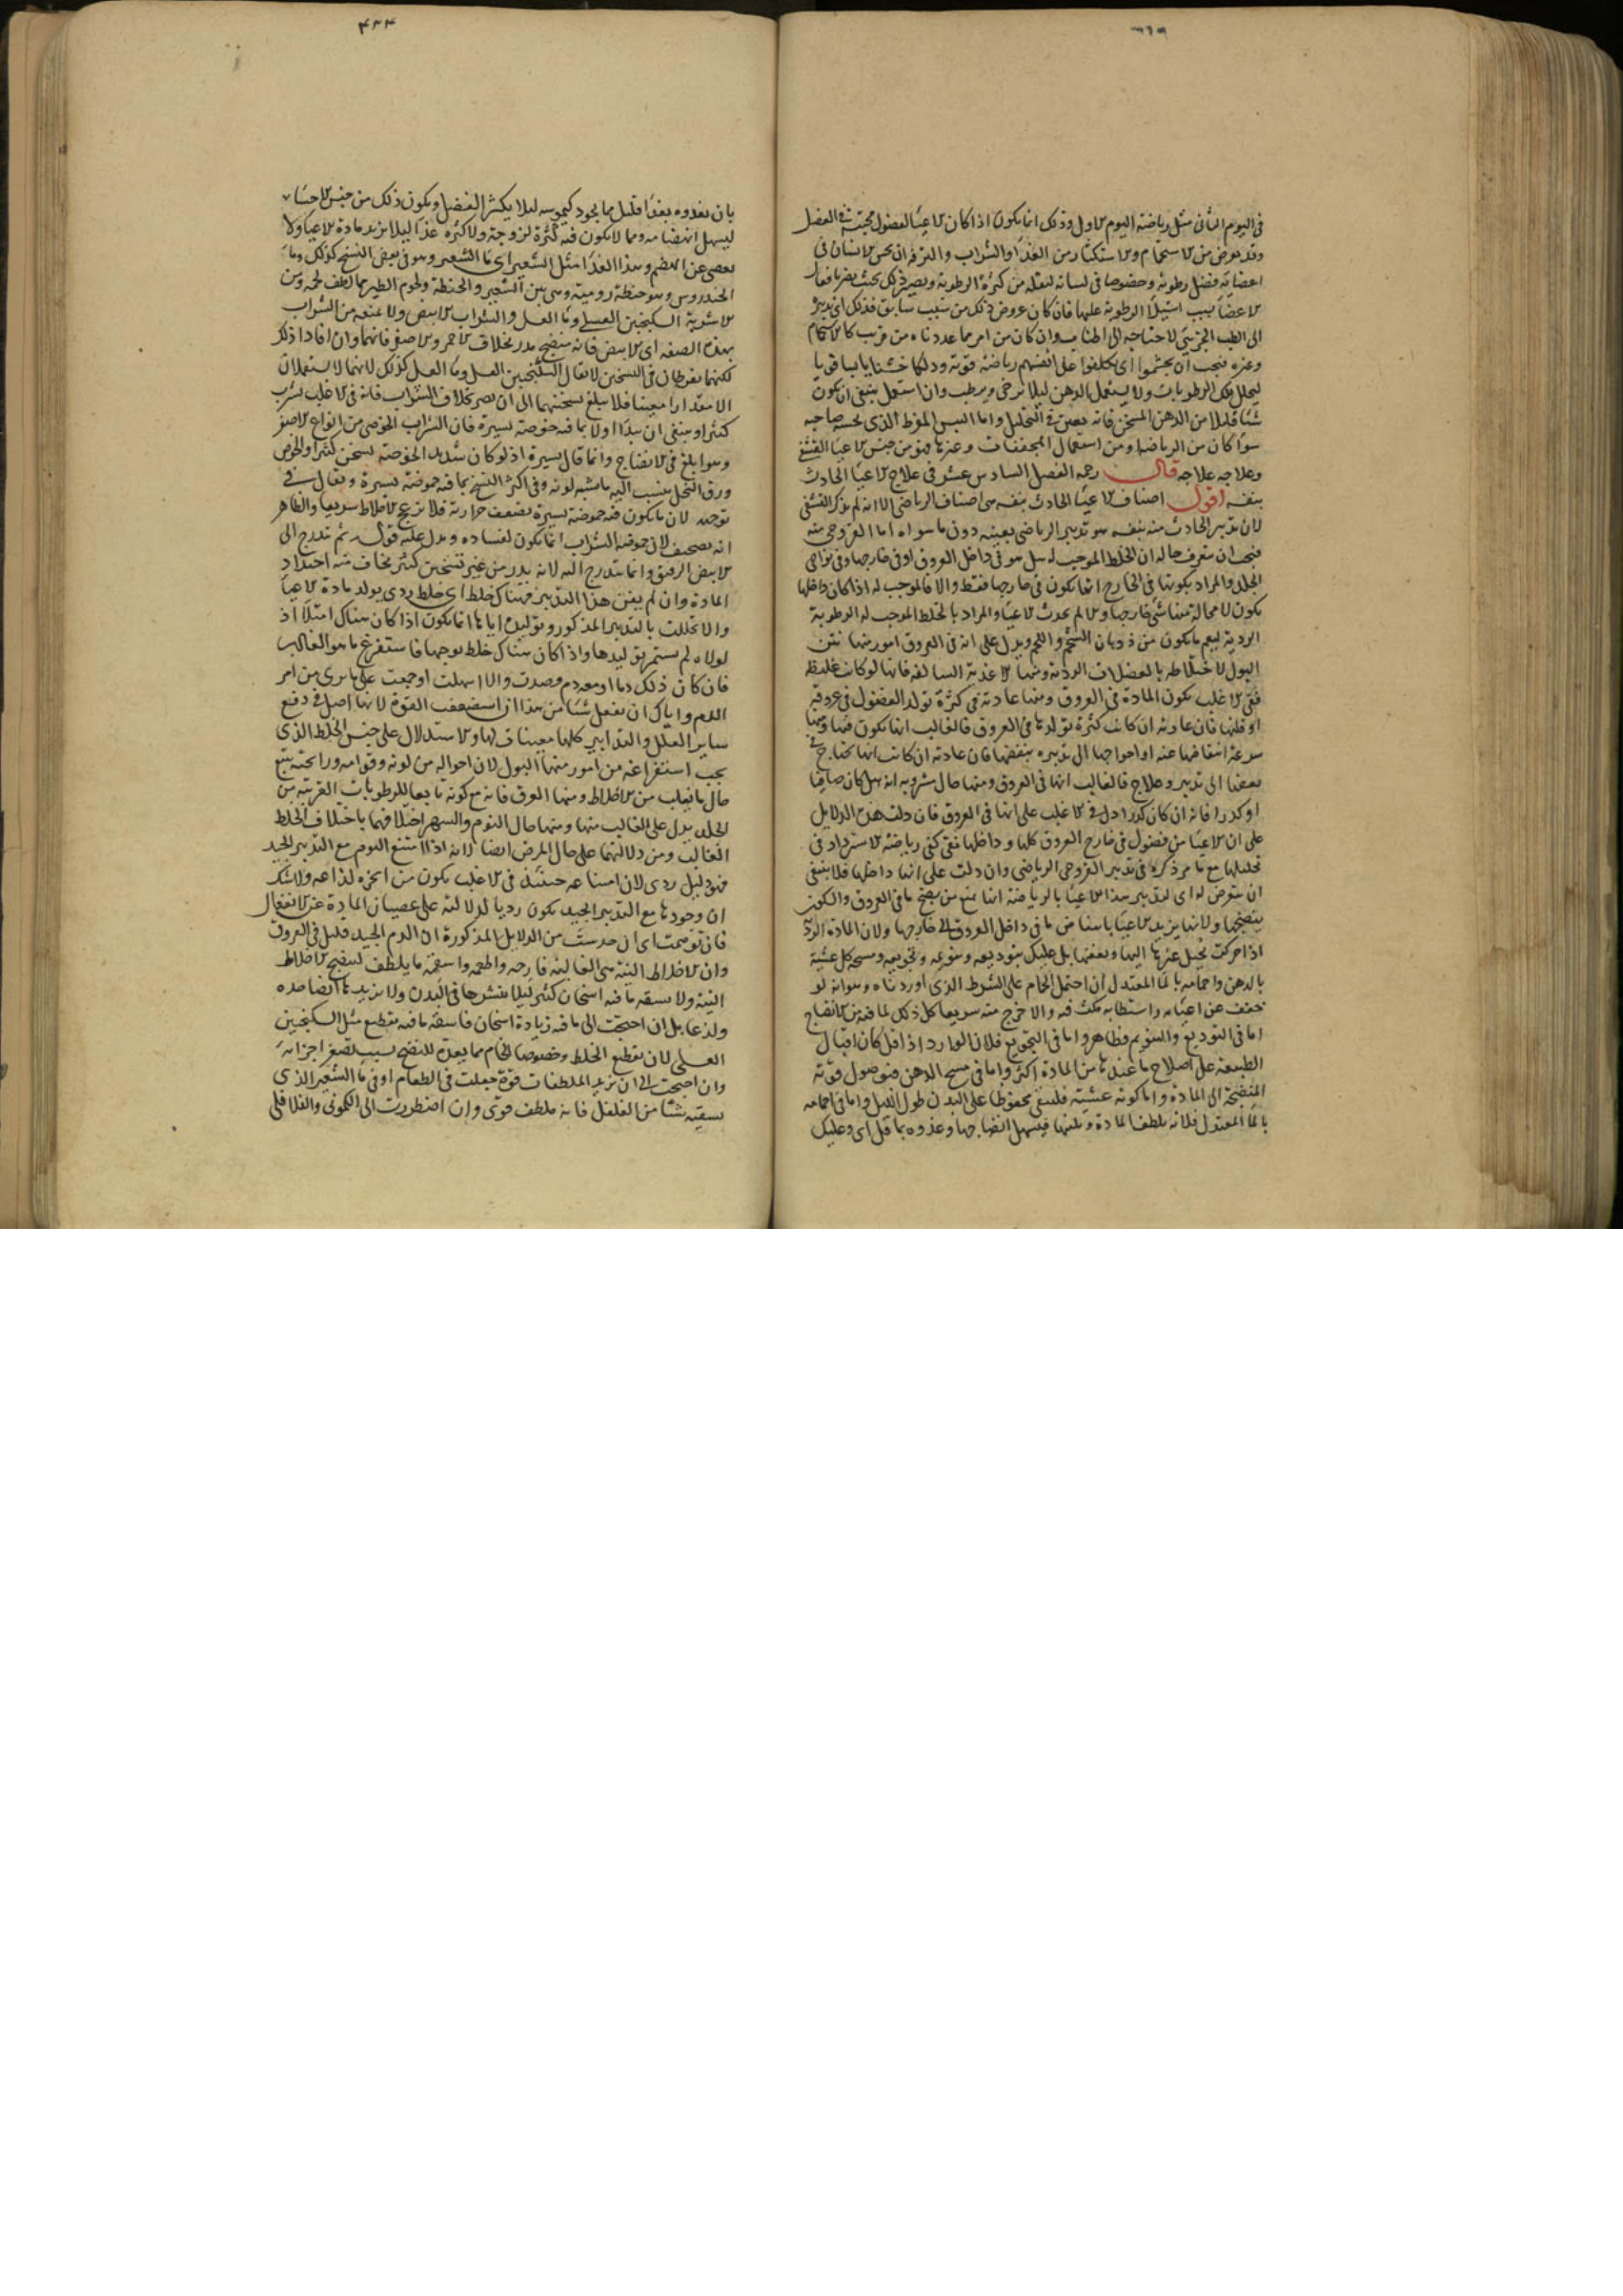 ٣٦٩
في اليوم الثاني مثل رياضة اليوم الاول وذلك انما يكون اذا كان الاعياء لفضول مجتمعة في العضل
وقد يعرض من الاستحمام والاستكثار من الغذاء والشراب والترفه ان يحس الانسان في
اعضائه فضل رطوبة وخصوصا في لسانه لتفله من كثرة الرطوبة ويصير ذلك بحيث يضر بافعال
الاعضاء بسبب استيلاء الرطوبة عليها فان كان عروض ذلك من سبب سابق فذلك اى تدبيره
الى الطب الجزئي لاحتياجه الى اطناب وان كان من امر مما عددناه من قريب كالاستحمام
وغيره فيجب ان يجشموا اى يكلفوا على انفسهم رياضة قوية ودلكا خشنا يابسا قويا
ليحلل تلك الرطوبات ولا يستعمل الدهن ليلا يرخى ويرطب وان استعمل ينبغي ان يكون
شيئا قليلا من الدهن المسخن فانه يعين في التحليل واما اليبس المفرط الذي يحسه صاحبه
سواء كان من الرياضة او من استعمال المجففات وغيرها فهو من جنس الاعياء القشفي
وعلاجه علاجه قال رحمه الفصل السادس عشر في علاج الاعياء الحادث
بنفسه اقول اصناف الاعياء الحادث بنفسه هي اصناف الرياضي الا انه لم يذكر القشفي
لان تدبير الحادث منه بنفسه هو تدبير الرياضي بعينه دون ما سواه اما القروحي منه
فيجب ان يتعرف حاله ان الخلط الموجب له هل هو في داخل العروق او في خارجها وفي نواحي
الجلد والمراد بكونها في الخارج انما يكون في خارجها فقط والا فالموجب له اذا كان داخلها
يكون لا محالة منها شئ خارجها والا لم يحدث الاعياء والمراد بالخلط الموجب له الرطوبة
الردية ليعم ما يكون من ذوبان الشحم واللحم ويدل على انه في العروق امور منها نتن
البول لاختلاطه بالفضلات الردية ومنها الاغذية السالفة فانها لو كانت غليظة
ففي الاغلب يكون المادة في العروق ومنها عادته في كثرة تولد الفضول في عروقه
او قلتها فان عادته ان كانت كثرة تولدها في العروق فالغالب انها يكون فيها ومنها
سرعة انتفاضها عنه او احواجها الى تدبيره بنفضها فان عادته ان كانت انها تحتاج في
نفضها الى تدبير وعلاج فالغالب انها في العروق ومنها حال مشروبه انه هل كان صافيا
او كدرا فانه ان كان كدرا دل في الاغلب على انها في العروق فان دلت هذه الدلايل
على ان الاعياء من فضول في خارج العروق كلها وداخلها نقي كفى رياضة الاسترداد في
تحليلها مع ما مر ذكره في تدبير القروحي الرياضي وان دلت على انها داخلها فلا ينبغي
ان يتعرض له اى لتدبير هذا الاعياء بالرياضة انها تمنع من نضج ما في العروق والسكون
ينضجها ولانها يزيد الاعياء باسنا من ما في داخل العروق الى خارجها ولان المادة الردية
اذا حركت تحيل غيرها اليها وبعضها بل عليك بتوديعه وتنويمه وتجويعه ومسحه كل عشية
بالدهن واحمامه بالماء المعتدل ان احتمل الحمام على الشرط الذي اوردناه وهو انه لو
خفف عن اعيائه واستطابه مكث فيه والا خرج منه سريعا كل ذلك لما فيه من الانضاج
اما في التوديع والتنويم فظاهر واما في التجويع فلان الوارد اذا قل كان اقبال
الطبيعة على اصلاح ما عندها من المادة اكثر واما في مسح الدهن فنوصول قوته
المنضجة الى المادة واما كونه عشية فليبقى محفوظا على البدن طول الليل واما في احمامه
بالماء المعتدل فلانه يلطف المادة ويلينها فيسهل انضاجها وغذوه بما قل اى وعليك
٤٣٤
بان تغذوه بغذاء قليل مما يجود كيموسه ليلا يكثر الفضل ويكون ذلك من جنس الاحساء
ليسهل انهضامه ومما لا يكون فيه كثرة لزوجة ولا كثرة غذاء ليلا يزيد مادة الاعياء ولا
يعصى عن الهضم وهذا الغذاء مثل الشعير اى ماء الشعير وهو في بعض النسخ كذلك وماء
الخندروس وهو حنطة رومية وهي بين الشعير والحنطة ولحوم الطير مما لطف لحمه ومن
الاشربة السكنجبين العسلي وماء العسل والشراب الابيض ولا تمنعه من الشراب
بهذه الصفة اى الابيض فانه منضج مدر بخلاف الاحمر والاصفر فانهما وان افادا ذلك
لكنهما يفرطان في التسخين لا يقال السكنجبين العسل وماء العسل كذلك لانهما لا يستعملان
الا مقدارا معينا فلا يبلغ تسخينهما الى ان يضر بخلاف الشراب فانه في الاغلب يشرب
كثيرا وينبغي ان يبدأ اولا بما فيه حموضة يسيرة فان الشراب الخوصي من انواع الاصفر
وهو ابلغ في الانضاج وانما قال يسيرة اذ لو كان شديد الحموضة يسخن كثيرا والخوص
ورق النخل ينسب اليه ما يشبه لونه وفي اكثر النسخ بما فيه حموضة يسيرة ويقال في
توجيهه لان ما يكون فيه حموضة يسيرة يضعف حرارته فلا يزعج الاخلاط سريعا والظاهر
انه تصحيف لان حموضة الشراب انما يكون لفساده ويدل عليه قوله ثم تدرج الى
الابيض الرقيق وانما يتدرج اليه لانه يدر من غير تسخين كثير يخاف منه احتداد
المادة وان لم يغن هذا التدبير فهناك خلط اى خلط ردى يولد مادة الاعياء
والا تحللت بالتدبير المذكور وتوليده اياها انما يكون اذا كان هناك امتلاء اذ
لولاه لم يستمر توليدها واذا كان هناك خلط يوجبها فاستفرغ ما هو الغالب
فان كان ذلك دما او معه دم فصدت والا اسهلت او جمعت على ما ترى من امر
الدم واياك ان تفعل شيئا من هذا ان استضعفت القوة لانها اصل في دفع
ساير العلل والتدابير كلها معينات لها والاستدلال على جنس الخلط الذي
يجب استفراغه من امور منها البول لان احواله من لونه وقوامه ورائحته يتبع
حال ما يغلب من الاخلاط ومنها العرق فانه مع كونه تابعا للرطوبات القريبة من
الجلد يدل على الغالب منها ومنها حال النوم والسهر اختلافهما باختلاف الخلط
الغالب ومن دلالتهما على حال المرض ايضا انه اذا امتنع النوم مع التدبير الجيد
فهو دليل ردى لان امتناعه حينئذ في الاغلب يكون من ابخرة لذاعة ولا شك
ان وجودها مع التدبير الجيد يكون رديا لدلالته على عصيان المادة عن الانفعال
فان توسمت اى ان حدست من الدلايل المذكورة ان الدم الجيد قليل في العروق
وان الاخلاط النية هي الغالبة فارحه واطعمه واسقه ما يلطف لينضج الاخلاط
النية ولا يسقه ما فيه اسخان كثير ليلا ينشرها في البدن ولا يزيدها ايضا حدة
ولذعا بل ان احتجت الى ما فيه زيادة اسخان فاسقه ما فيه تقطيع مثل السكنجبين
العسلي لان تقطيع الخلط وخصوصا الخام مما يعده للنضج بسبب تصغير اجزائه
وان احتجت الى ان تزيد الملطفات قوة جعلت في الطعام او في ماء الشعير الذي
يسقيه شيئا من الفلفل فانه ملطف قوي وان اضطررت الى الكموني والفلافلي